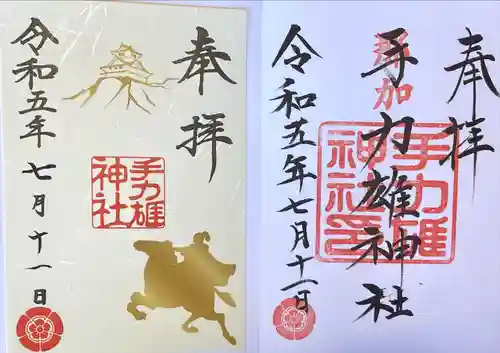 奉拝
手力雄
神社
令和五年七月十一日
奉拝
那加
手力雄神社
手力雄
神社印
令和五年七月十一日